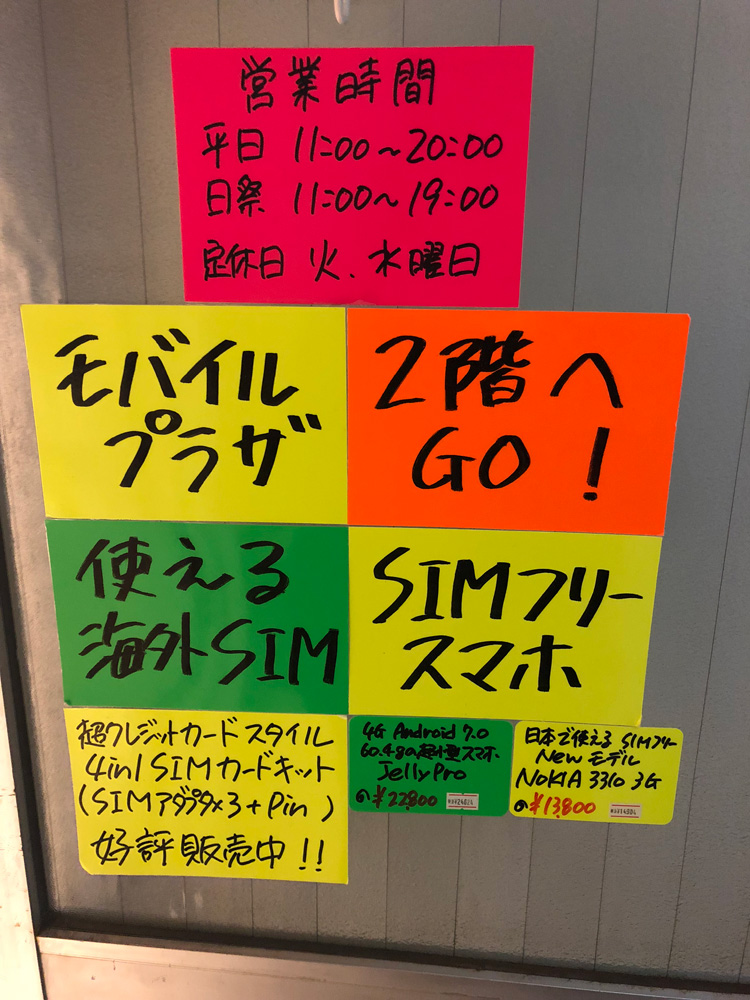 営業時間
平日 11:00～20:00
日祭 11:00～19:00
定休日 火、水曜日
モバイル
プラザ
2階へ
GO!
使える
海外SIM
SIMフリー
スマホ
超クレジットカードスタイル
4in1SIMカードキット
(SIMアダプタ×3+Pin)
好評販売中!!
4G Android 7.0
60.4gの超小型スマホ
Jelly Pro
¥22,800
日本で使える SIMフリー
New モデル
NOKIA 3310 3G
¥13,800